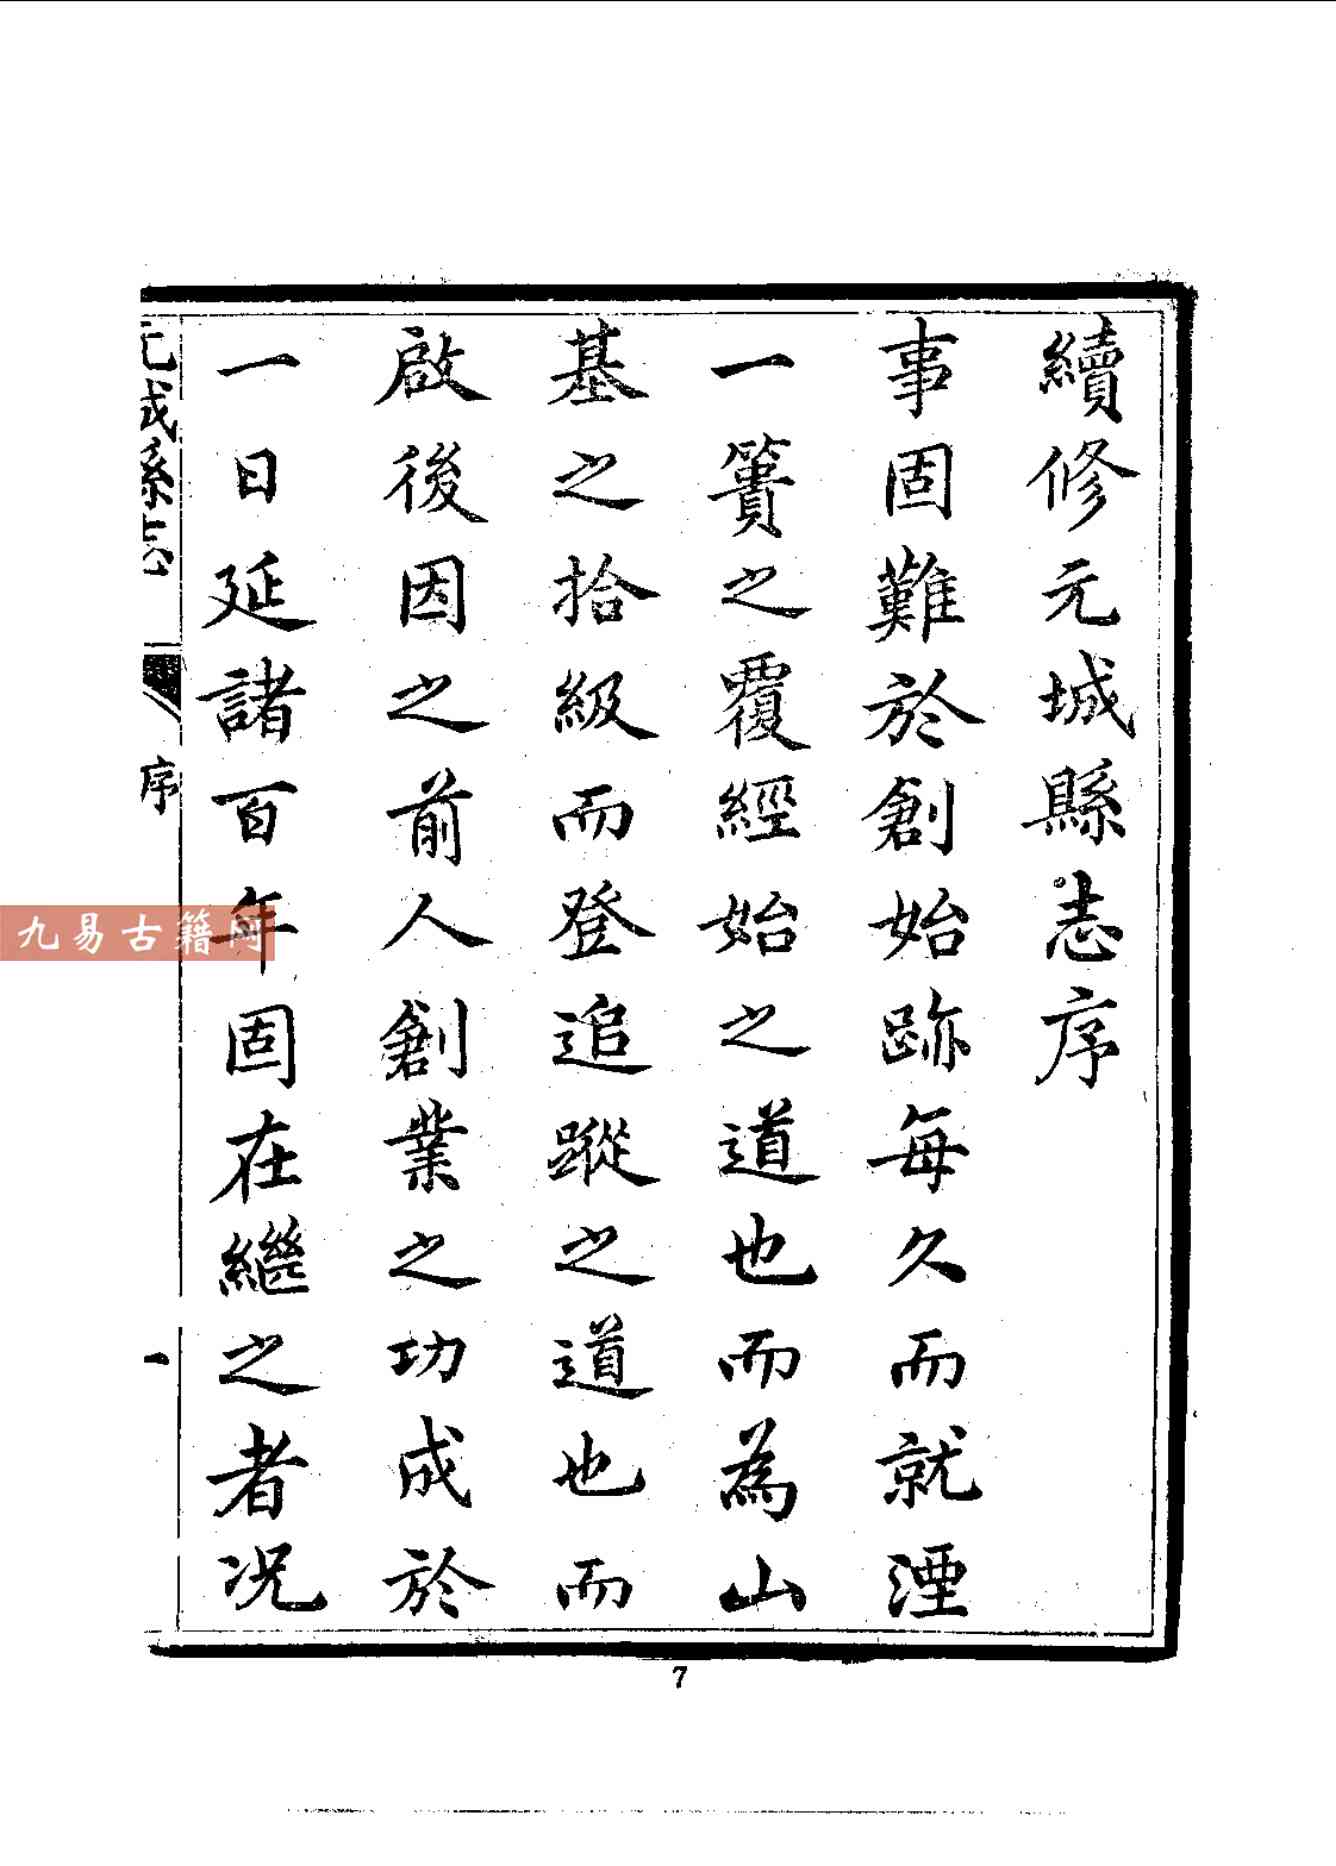 續修元城縣志序
事固難於創始跡每久而就湮
一簣之覆經始之道也而為山
基之拾級而登追蹤之道也而
啟後因之前人創業之功成於
一日延諸百年固在繼之者况
元城縣志
序
一
九易古籍网
7